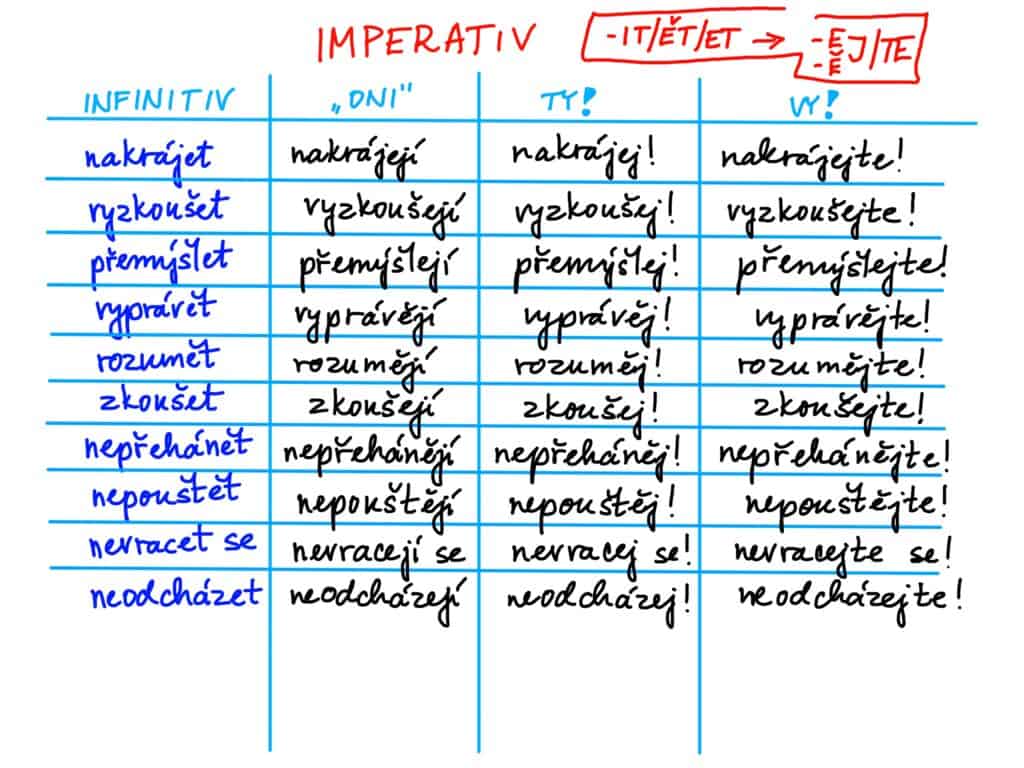 IMPERATIV -IT/ĚT/ET → -E
-Ě J/TE
INFINITIV „ONI" TY! VY!
nakrájet nakrájejí nakrájej! nakrájejte!
vyzkoušet vyzkoušejí vyzkoušej! vyzkoušejte!
přemýšlet přemýšlejí přemýšlej! přemýšlejte!
vyprávět vyprávějí vyprávěj! vyprávějte!
rozumět rozumějí rozuměj! rozumějte!
zkoušet zkoušejí zkoušej! zkoušejte!
nepřehánět nepřehánějí nepřeháněj! nepřehánějte!
nepouštět nepouštějí nepouštěj! nepouštějte!
nevracet se nevracejí se nevracej se! nevracejte se!
neodcházet neodcházejí neodcházej! neodcházejte!